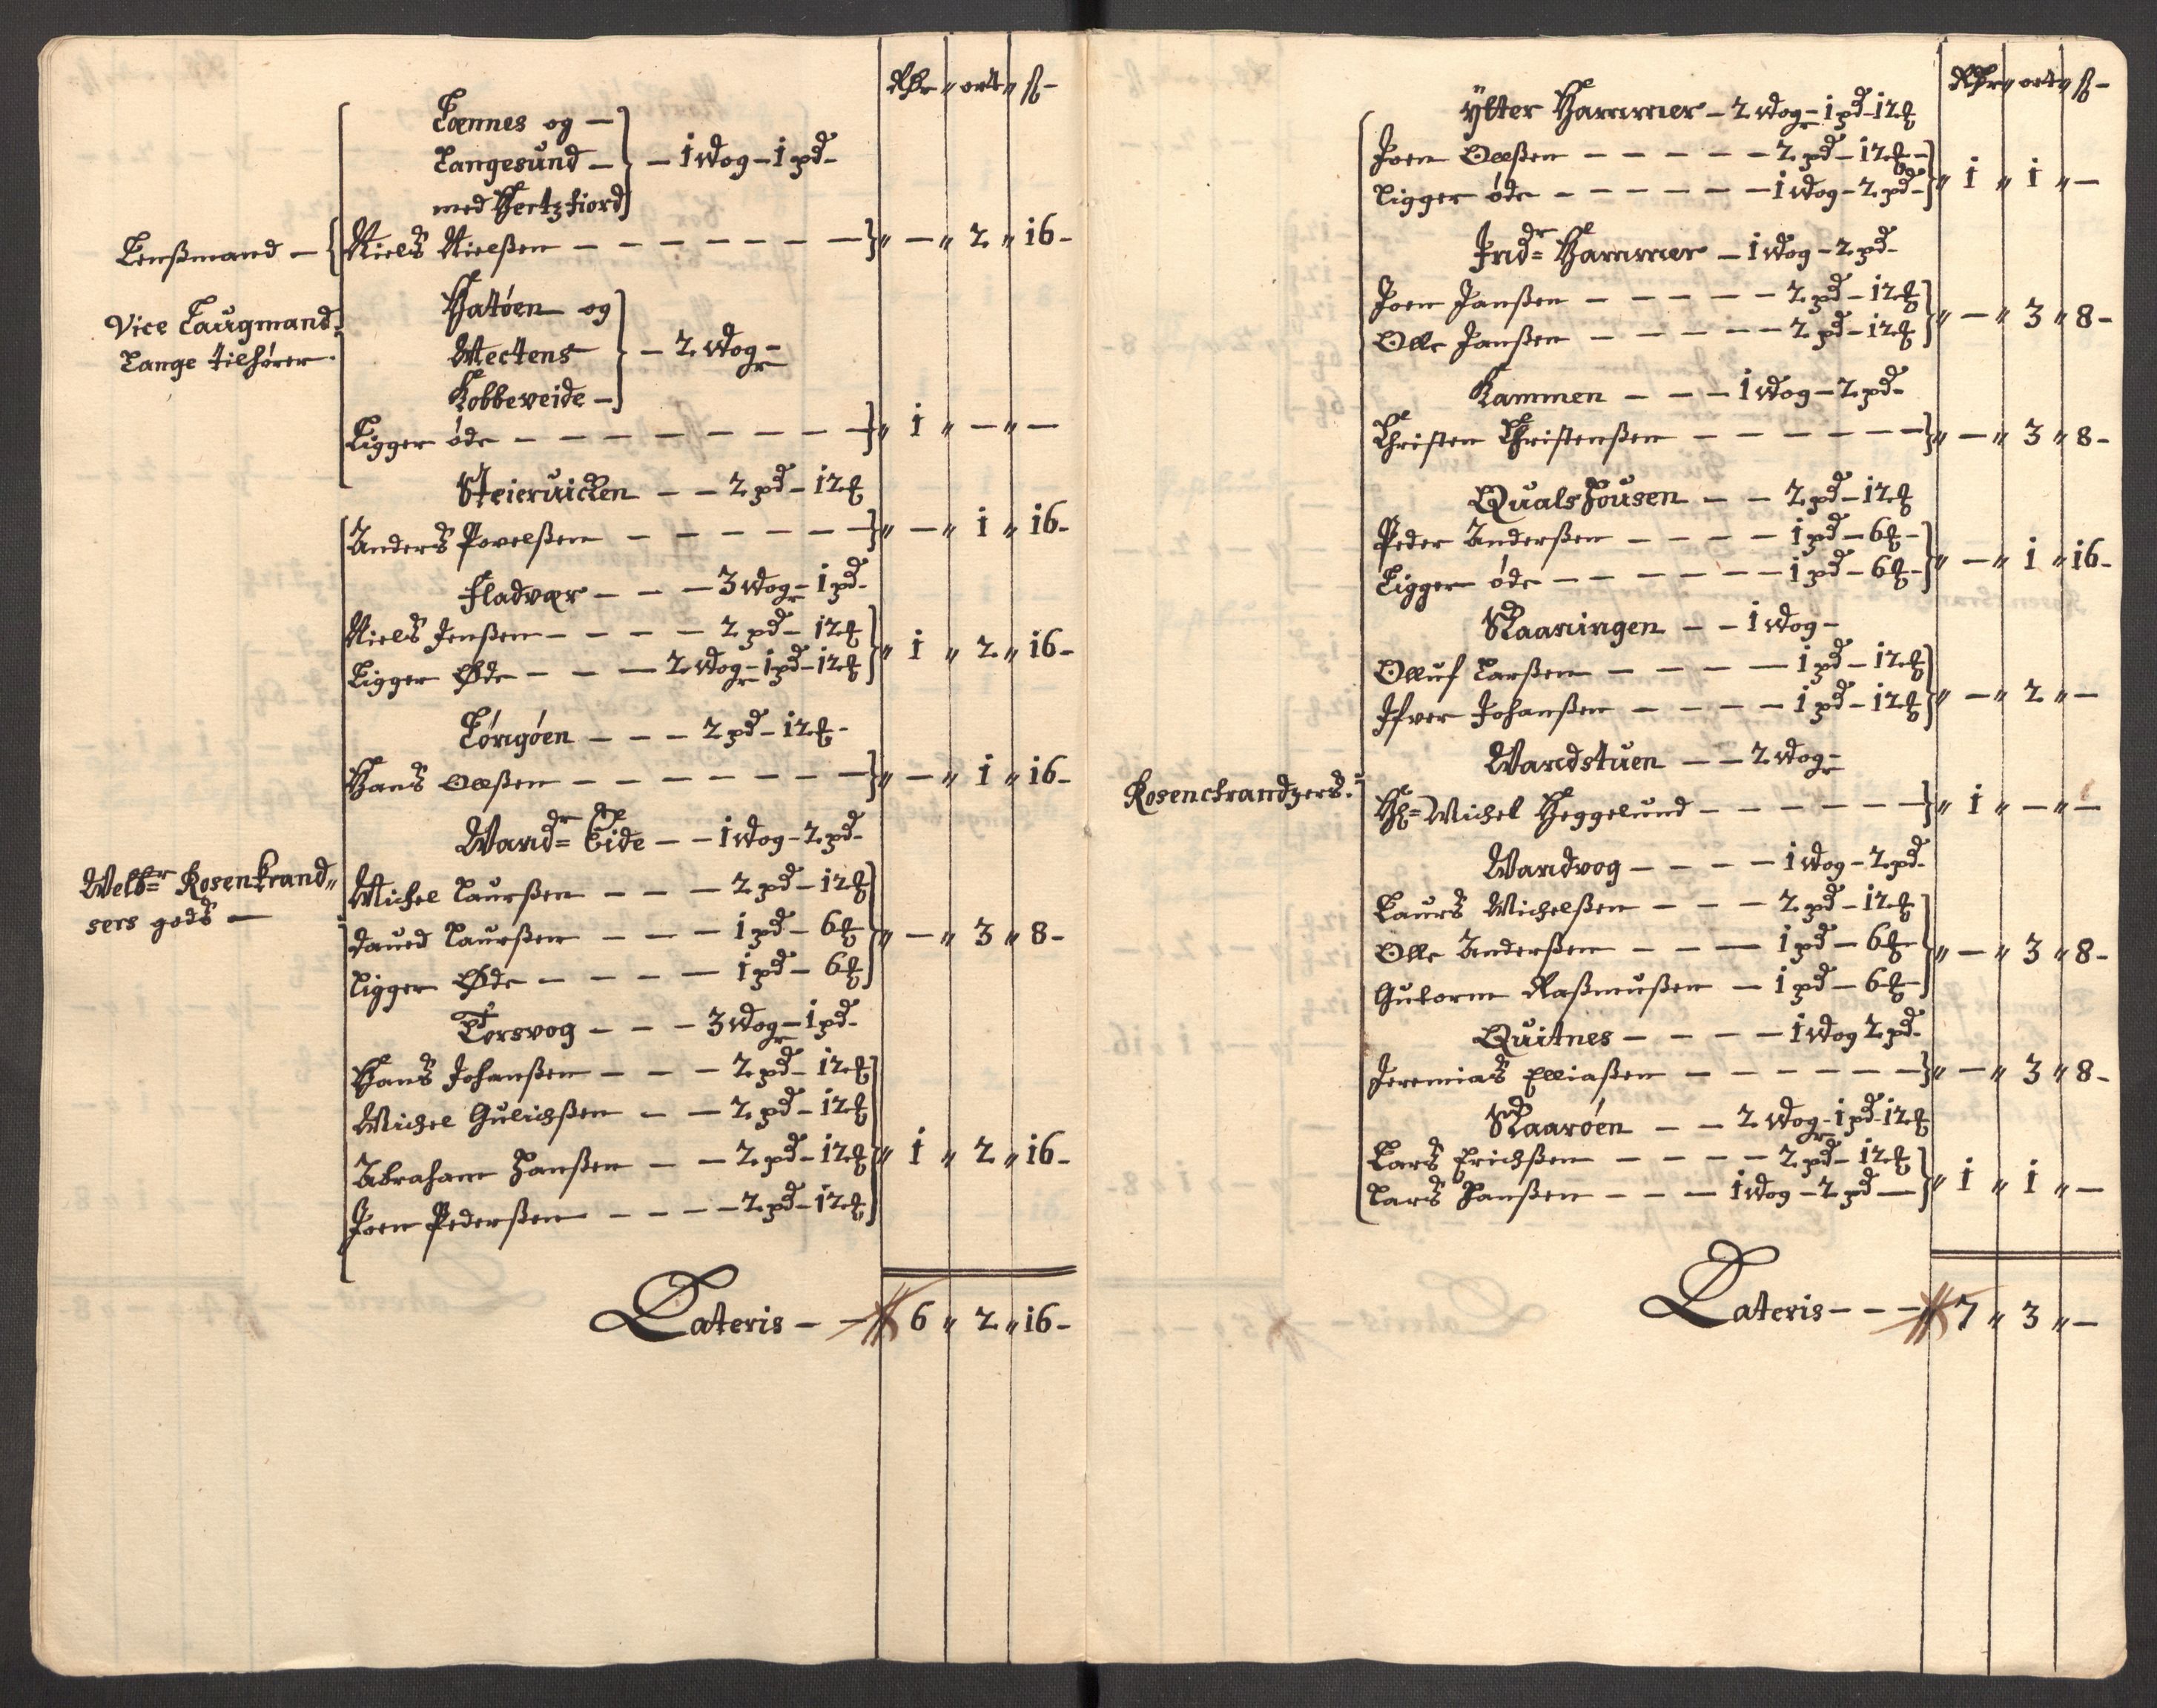 Rdr " ort " ß -
Tønnes og -
Langesund -
med Hertzfiord } - 1 wog - 1 pd -
Lenßmand - { Niels Nielßen - - - - - - - } " - " 2 " 16 -
Vice Laugmand
Lange tilhører.
Hatøen og
Mectens
Kobbeveide - } - 2 wogr -
Ligger øde - - - - - - - - - } " 1 " - " -
Steiervicken - - 2 pd - 12 ℔
Anders Povelßen - - - - - - } " - " 1 " 16 -
Fladvær - - - 3 wogr - 1 pd -
Niels Jenßen - - - - 2 pd - 12 ℔
Ligger Øde - - - 2 wogr - 1 pd - 12 ℔ } " 1 " 2 " 16 -
Løngøen - - - 2 pd - 12 ℔ -
Hans Olßen - - - - - - - } " - " 1 " 16 -
Wand= Eide - - 1 wog - 2 pd -
Welbr Rosenkrand„
sers gods -
Michel Laurßen - - - 2 pd - 12 ℔
Daued Laurßen - - - 1 pd - 6 ℔
Ligger Øde - - - - 1 pd - 6 ℔ } " - " 3 " 8 -
Torsvog - - - 3 wogr - 1 pd -
Hans Johanßen - - - 2 pd - 12 ℔
Michel Gulichßen - - 2 pd - 12 ℔
Abraham Hanßen - - 2 pd - 12 ℔ " 1 " 2 " 16 -
Joen Pederßen - - - - 2 pd - 12 ℔
Lateris - - 6 " 2 " 16 -
Rdr " ort " ß -
Ytter Hammer - 2 wogr - 1 pd - 12 ℔
Joen Olßen - - - - - 2 pd - 12 ℔ -
Ligger øde - - - - - - 1 wog - 2 pd - } " 1 " 1 " -
Indr= Hammer - 1 wog - 2 pd -
Joen Janßen - - - - - 2 pd - 12 ℔
Olle Janßen - - - - - 2 pd - 12 ℔ } " - " 3 " 8 -
Kammen - - - 1 wog - 2 pd -
Christen Christenßen - - - - - - } " - " 3 " 8 -
Qualshousen - - 2 pd - 12 ℔
Peder Anderßen - - - - 1 pd - 6 ℔ -
Ligger øde - - - - - - 1 pd - 6 ℔ - } " - " 1 " 16 -
Skaaningen - - 1 wog -
Olluf Larßen - - - - 1 pd - 12 ℔
Ifver Johanßen - - - - 1 pd - 12 ℔ } " - " 2 " -
Wandstuen - - 2 wogr -
Rosenckrandzers.
Hr= Michel Heggelund - - - - - - } " 1 " - " -
Wandvog - - - - 1 wog - 2 pd -
Laurs Michelßen - - - 2 pd - 12 ℔
Olle Anderßen - - - 1 pd - 6 ℔
Gutorm Raßmußen - 1 pd - 6 ℔ - } " - " 3 " 8 -
Quitnes - - - - 1 wog 2 pd -
Jeremias Elliaßen - - - - - - } " - " 3 " 8 -
Skaarøen - - 2 wogr - 1 pd - 12 ℔
Lars Erichßen - - - - - 2 pd - 12 ℔
Lars Hanßen - - - 1 wog - 2 pd - } " 1 " 1 " -
Lateris - - - 7 " 3 " -